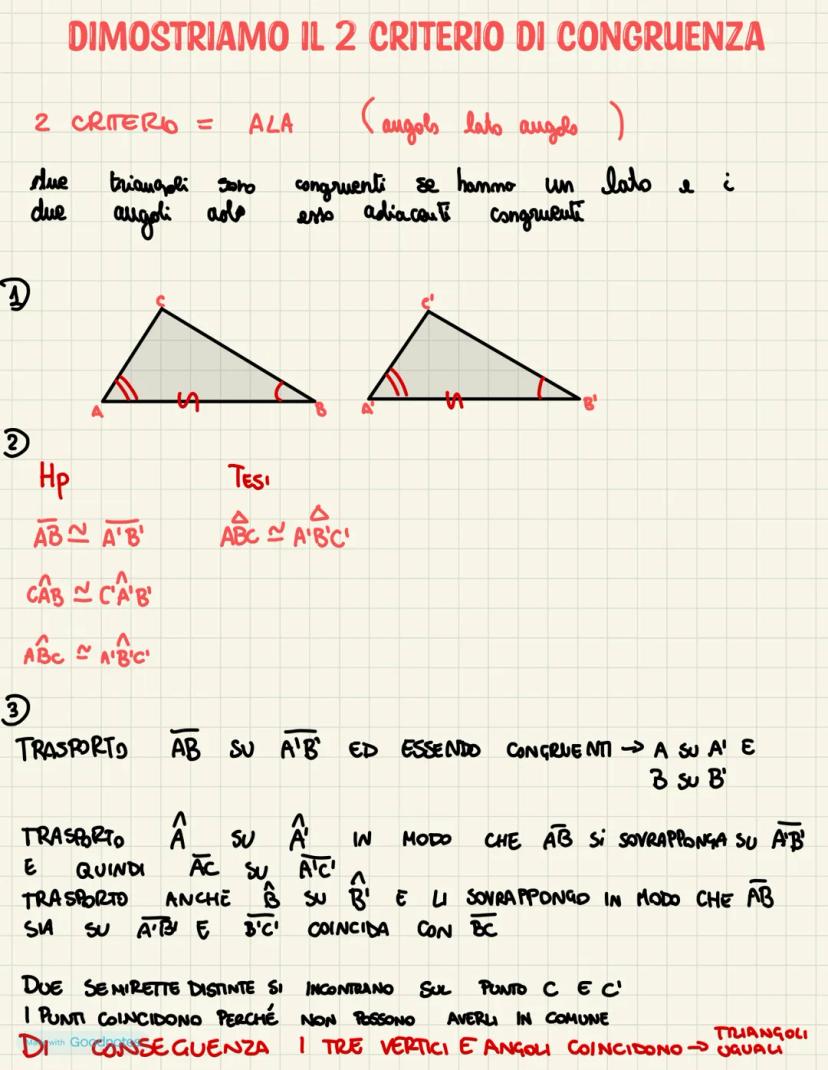 DIMOSTRIAMO IL 2 CRITERIO DI CONGRUENZA
2 CRITERIO = ALA (angolo lato angolo)
due triangoli sono congruenti se hanno un lato e i
due angoli ado esso adiacenti congruenti
1)
C
C'
A
B
A'
B'
2)
Hp Tesi
A͞B ≅ A͞'B͞' AB̂C ≅ A'B̂'C'
CÂB ≅ C'Â'B'
AB̂C ≅ A'B̂'C'
3)
TRASPORTO A͞B SU A͞'B͞' ED ESSENDO CONGRUENTI → A SU A' E
B SU B'
TRASPORTO Â SU Â' IN MODO CHE A͞B SI SOVRAPPONGA SU A͞'B͞'
E QUINDI A͞C SU A͞'C͞'
TRASPORTO ANCHE B̂ SU B̂' E LI SOVRAPPONGO IN MODO CHE A͞B
SIA SU A͞'B͞' E B͞'C͞' COINCIDA CON B͞C
DUE SEMIRETTE DISTINTE SI INCONTRANO SUL PUNTO C E C'
I PUNTI COINCIDONO PERCHÉ NON POSSONO AVERLI IN COMUNE
DI CONSEGUENZA I TRE VERTICI E ANGOLI COINCIDONO → TRIANGOLI
UGUALI
Made with Goodnotes